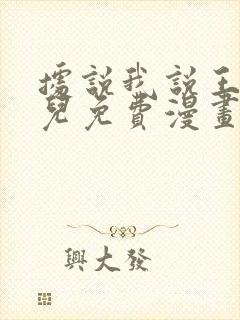 據說我說王
兒免費漫畫
興大發